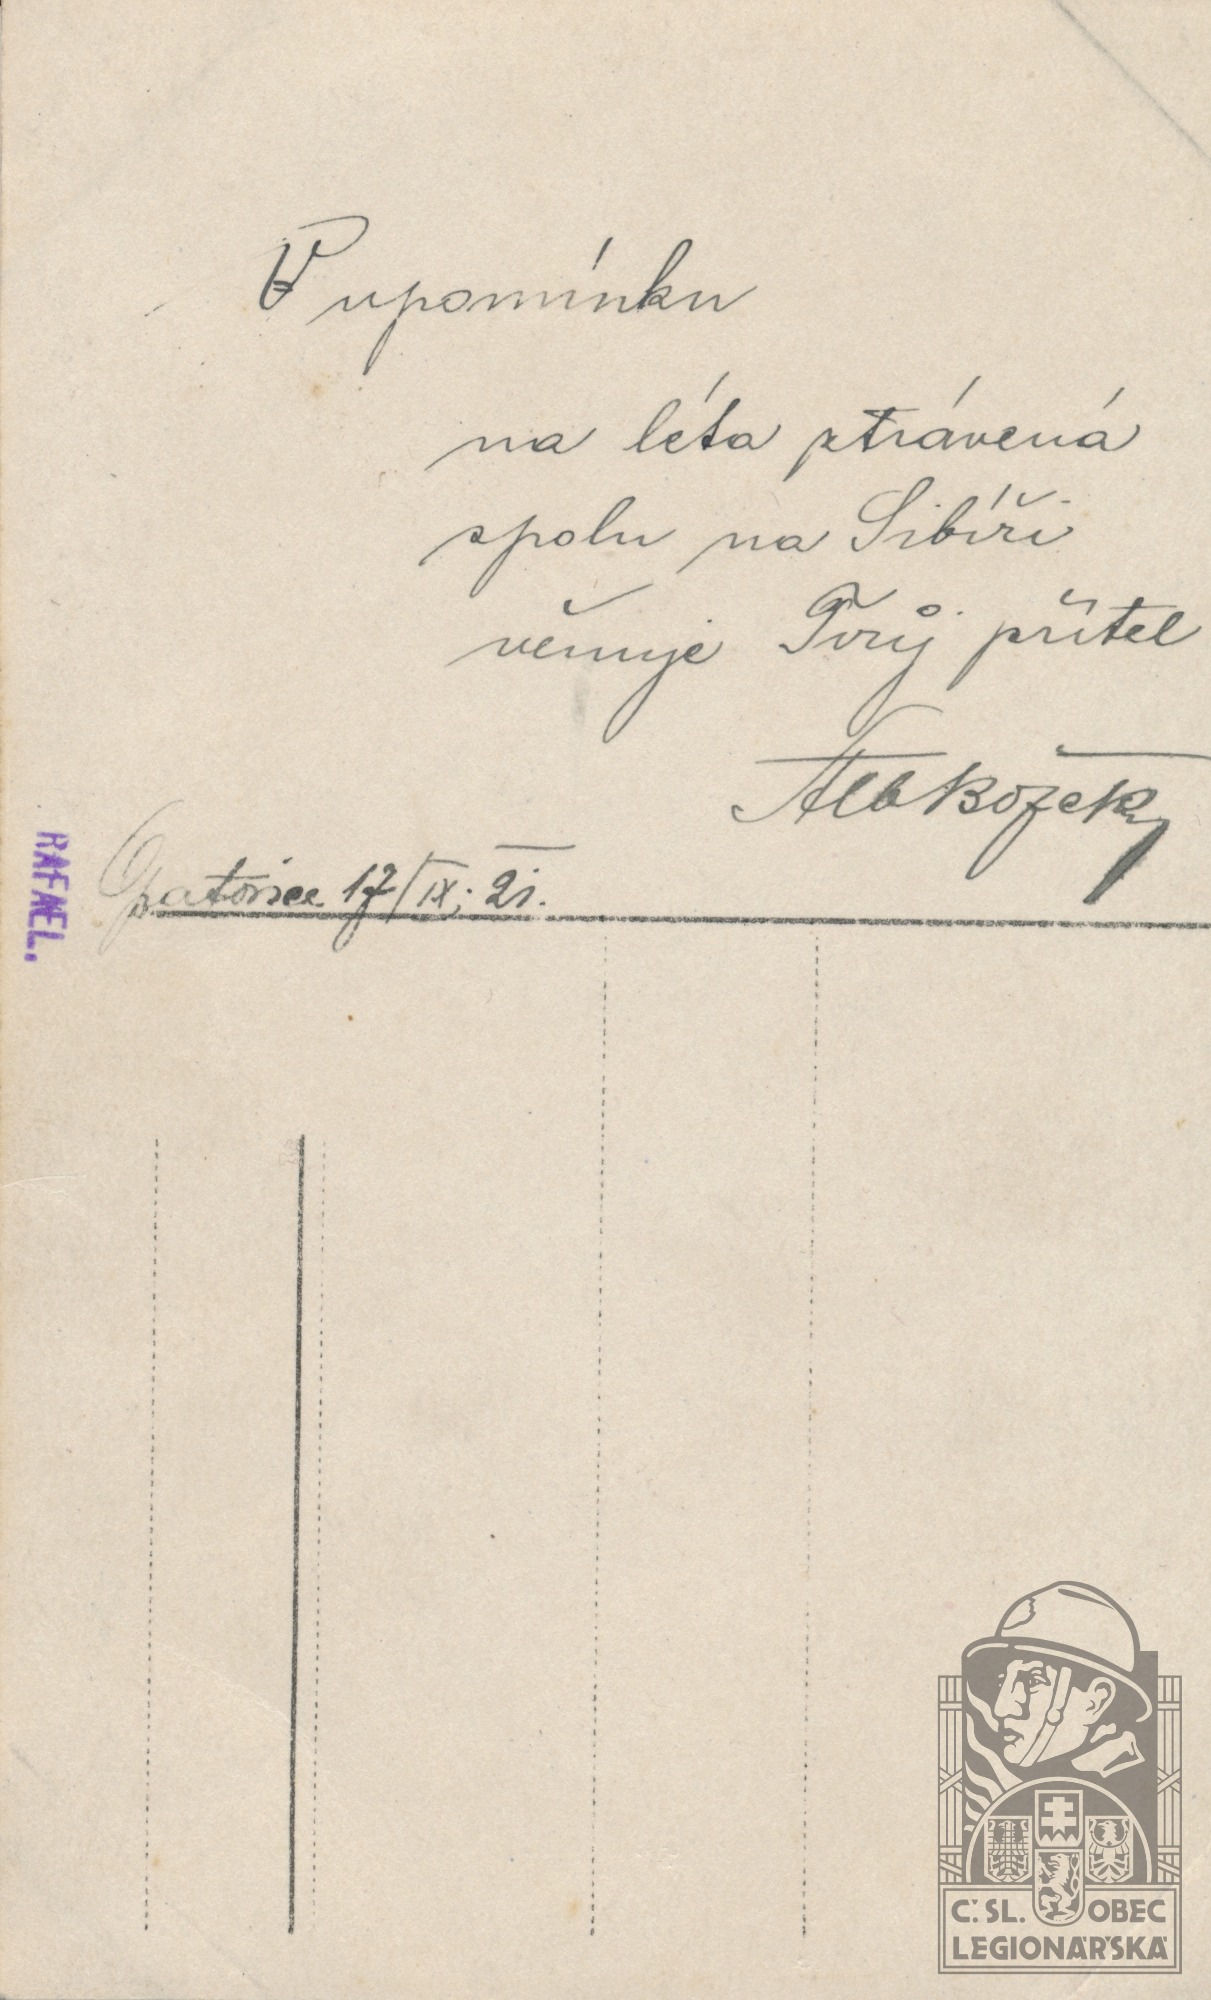 V upomínku
na léta ztrávená
spolu na Sibíři
věnuje Tvůj přítel
Alb Božek
Opatovice 17/IX. 21.
RAFAEL.
Č. SL. OBEC
LEGIONÁŘSKÁ